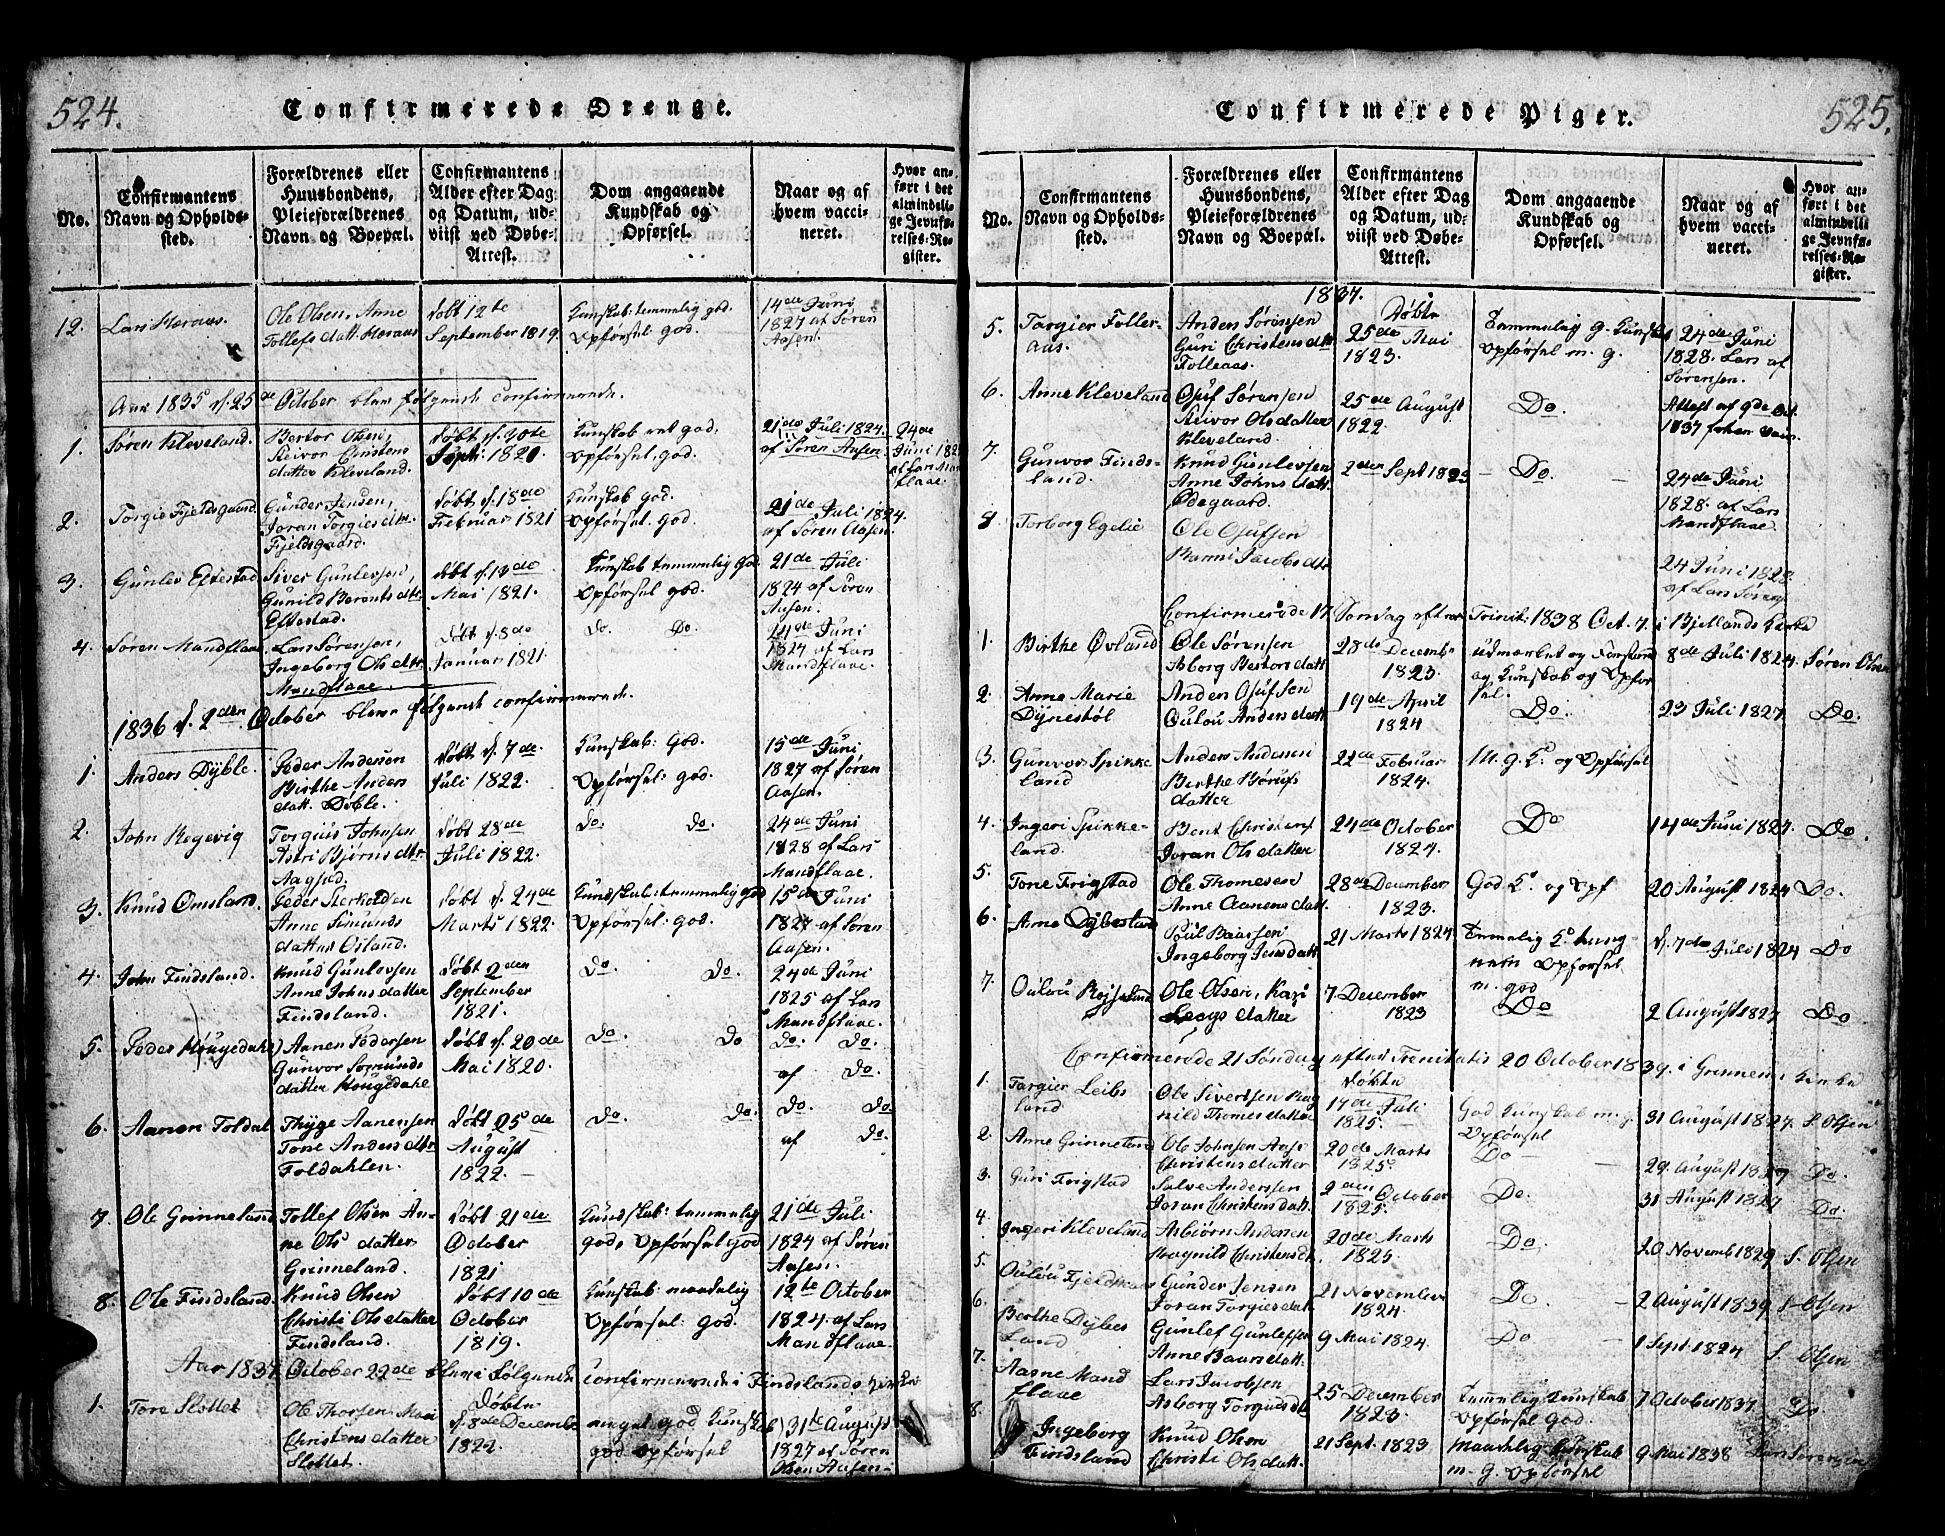 524.
Confirmerede Drenge.
No.
Confirmantens
Navn og Opholds-
sted.
Forældrenes eller
Huusbondens,
Pleieforældrenes
Navn og Boepæl.
Confirmantens
Alder efter Dag
og Datum, ud-
viist ved Døbe-
Attest.
Dom angaaende
Kundskab og
Opførsel.
Naar og af
hvem vacci-
neret.
Hvor an-
ført i det
almindeli-
ge Jevnfø-
relses-Re-
gister.
12. Lars Heraas.
Ole Olsen, Anne
Tollefsdatt. Heraas
døbt 12te
September 1819.
Kunskab: temmelig god.
Opførsel god.
14de Juni
1827 af Søren
Aasen.
Aar 1835 d. 25de October blev følgende confirmerede.
1. Søren Kleveland.
Bertor Olsen,
Christens
datter Kleveland.
Døbt d. 30te
Septr: 1820.
Kunskab ret god.
Opførsel god.
21de Juli 1824.
af Søren Aasen.
24de
Juni 182
af Lars Man
flaae.
2. Torgie Fjeldsgaard.
Gunder Jensen,
Joran Torgiesdtr.
Fjeldsgaard.
døbt d. 18de
Februar 1821
Kunskab god.
Opførsel: god.
21de Juli 1824.
af Søren Aasen.
3. Gunlev Eftestad
Siver Gunlevsen,
Gunild Berentsdtr.
Eftestad.
døbt d. 13de
Mai 1821.
Kunskab temmelig god
Opførsel god.
21de Juli
1824 af Søren
Aasen.
4. Søren Mandflaae.
Lars Sørensen,
Ingeborg Olsdtr.
Mandflaae.
døbt d. 8de
Januar 1821.
do. Do.
24de Juni
1824 af Lars
Mandflaae.
1836 d. 2den October bleve følgende confirmerede.
1. Anders Dyble.
Peder Andersen
Birthe Anders
datt. Døble.
Døbt d. 7de
Juli 1822.
Kunskab: God.
Opførsel: god.
15de Juni
1827 af Søren
Aasen.
2. John Regevig
Torgius Johnsen
Astri Bjørnsdtr.
døbt 28de
Juli 1822.
do. do.
24de Juni
1828 af Lars
Mandflaae.
3. Knud Omsland.
Peder
Anne
datter Osland.
døbt d. 24de
Marts 1822.
Kundskab: temmelig god
Opførsel: god.
15de Juni
1827 af Søren
Aasen.
4. John Findsland.
Knud Gunlevsen
Anne Johnsdatter
Findsland.
døbt 2den
September
1821.
do. do.
24de Juni
1825 af Lars
Mandflaae.
5. Peder Hougedahl
Aanen Pedersen
Gunvor
datter Hougedahl
døbt d. 20de
Mai 1820.
do. do
do. do.
af do.
6. Aanen Foldal
Thyge Aanensen
Tone Andersdtr.
Foldahlen.
døbt 25de
August
1822.
do. do.
do. do.
af do.
7. Ole Grinneland
Tollef Olsen An-
ne Olsdatter
Grinneland.
døbt 21de
October
1821
Kundskab: temmelig
god, Opførsel god
21de Juli
1824 af Søren
Aasen.
8. Ole Findsland.
Knud Olsen
Christi Olsdatter
Findsland.
døbt 10de
October
1819.
Kunskab maadelig
Opførsel: god.
12te October
1824. af Lars
Mandflaae.
Aar 1837 October 22de bleve følgende confirmerede i Findslands Kirke
1. Tore Slottet
Ole Thorsen
Christensdatter
Slottet.
Døbte
d. 8de Decembe
1822.
meget god Kundskab
god Opførsel
31te August
1827 af Søren
Olsen Aasen
525.
Confirmerede Piger.
No.
Confirmantens
Navn og Opholds-
sted.
Forældrenes eller
Huusbondens,
Pleieforældrenes
Navn og Boepæl.
Confirmantens
Alder efter Dag
og Datum, ud-
viist ved Døbe-
Attest.
Dom angaaende
Kundskab og
Opførsel.
Naar og af
hvem vacci-
neret.
Hvor an-
ført i det
almindeli-
ge Jevnfø-
relses-Re-
gister.
1837.
5. Targier Foller-
aas.
Anders Sørensen
Guri Christensdtr
Folleaas.
Døbte
25de Mai
1823.
Temmelig g. Kundskab
Opførsel m. g.
24de Juni
1828. Lars af
Sørensen.
6. Anne Kleveland
Osuf Sørensen
Olsdatter
Kleveland.
25de August
1822.
Do.
Attest af 9de Oct.
1837
7. Gunvor Finds-
land.
Knud Gunlevsen
Anne Johnsdatt.
Ødegaard.
2den Sept 1823
Do.
24de Juni
1828. af Lars
Mandflaae
8 Torborg Egelie
Ole Osufsen
Jacobsdtr
24 Juni 1828.
af Lars
Confirmerede 17 Søndag efter Trinit. 1838 Oct. 7. i Bjellands Kirke
1. Birthe Øvland
Ole Sørensen
Asborg Bertorsdatt
28de Decembe
1823.
udmærket og Forstand
og Kunskab og Opfør
sel.
8de Juli 1824.
Søren Olsen
2. Anne Marie
Dynestøl
Anders Osufsen
Oulou Andersdatt
19de April
1824
Do.
23 Juli 1827
Do.
3. Gunvor Spikke
land
Anders Andersen
Berthe
datter
22de Februar
1824.
M. g. K. og Opførsel
4. Ingeri Spikke-
land.
Bent Christens
Joran Olsdatter
24de October
1824.
Do
14de Juni 1827.
Do.
5. Tone Frigstad
Ole Thomesen
Anne Aanensdatt.
28de December
1823.
God K. og Opf
20 August 1824
Do.
6. Anne Dybesland
Poul Baarsen
Ingeborg Jensdatt.
21 Marts 1824
Opførsel
m. god
d. 7de Juli 1824
Do
7. Oulou
Ole Olsen, Kari
datter
7 December
1823
Do
2 August 1827
Do.
Confirmerede 21 Søndag efter Trinitatis 20 October 1839. i Grinnem. Kirke
1. Targier Leibs
land
Ole Sivertsen Rag
nild Thomesdatter
Døbte
17de Juli
1825.
God Kunskab m. g.
Opførsel
31 August 1827.
S. Olsen
2. Anne Grinneland
Ole Johnsen Aase
Christensdatter
20de Marts
1825
Do
29. August 1827
Do.
3. Guri Frigstad
Salve Andersen
Joran Christensdatt.
2den October
1825.
Do.
31 August 1827
Do.
4. Ingeri Kleveland
Asbiørn Andersen
Ragnild Christensdt.
20de Marts
1825.
Do.
20 Novemb 1829
S. Olsen
5. Oulou
Gunder Jensen
Joran Torgiesdatt.
21 November
1824.
Do.
2 August 1839
S. Olsen
6. Berthe Dybes
Land
Gunlef Gunlefsen
Anne Baarsdatt.
9 Mai 1824.
Do
1 Sept. 1824
S. Olsen
7. Aasne Mand
flaae
Lars Jacobsen
Asborg Torgiusdt.
25 December
1823.
Temmelig Kunskab
Opførsel God.
7 October 1837
Do.
8. Ingeborg
Findsland
Knud Olsen
Christi Olsdatt.
21 Sept. 1823
Maadelig Kunskab
m. g. Opførsel
9 Mai 1838
Lars Sørensen